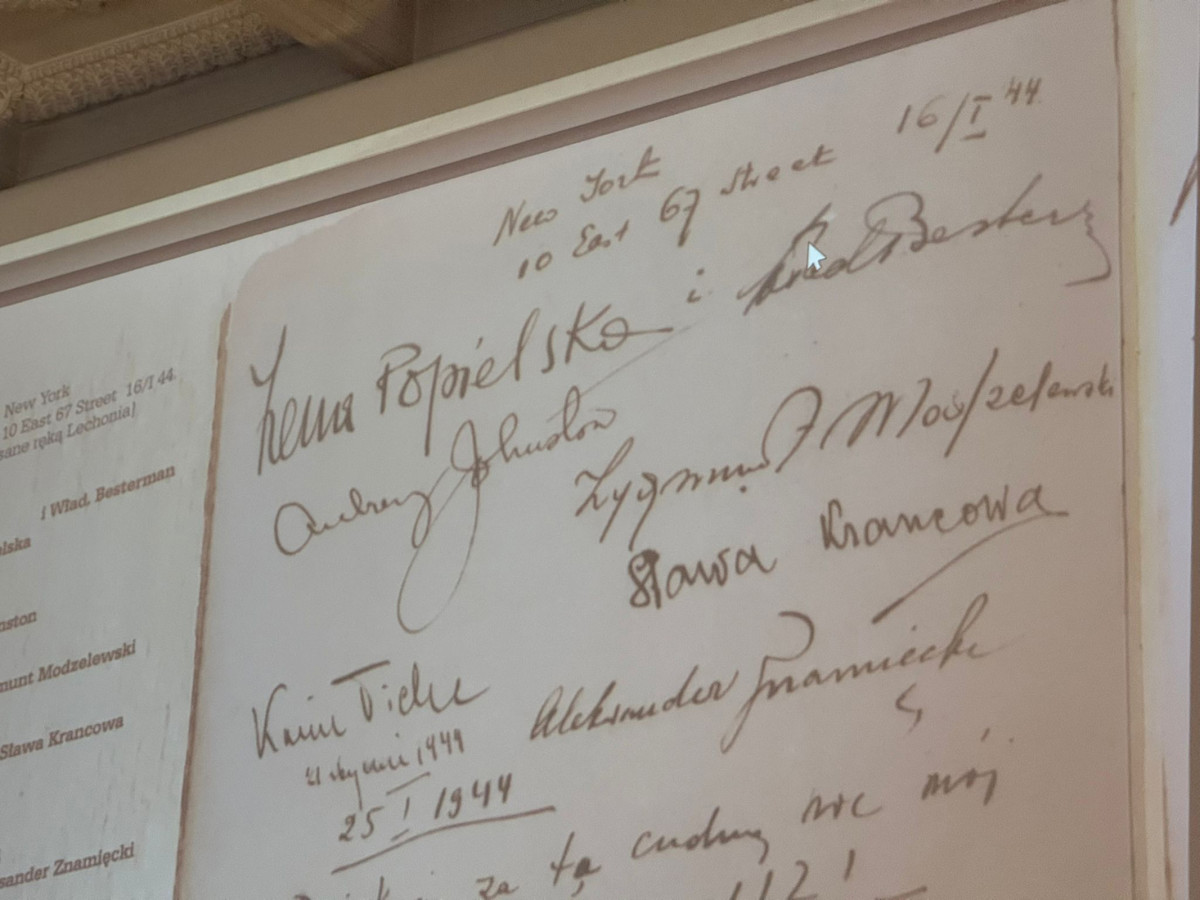 New York
10 East 67 Street 16/I 44.
sane ręką Lechonia]
i Wład. Besterman
elska
nston
munt Modzelewski
Sława Krancowa
sander Znamięcki
New York
10 East 67 Street 16/I 44.
Irena Popielska i Wład Besterman
Andrzej Johnston
Zygmunt Modzelewski
Sława Krancowa
Aleksander Znamięcki
1944
25 I 1944
za tą cudną noc mój